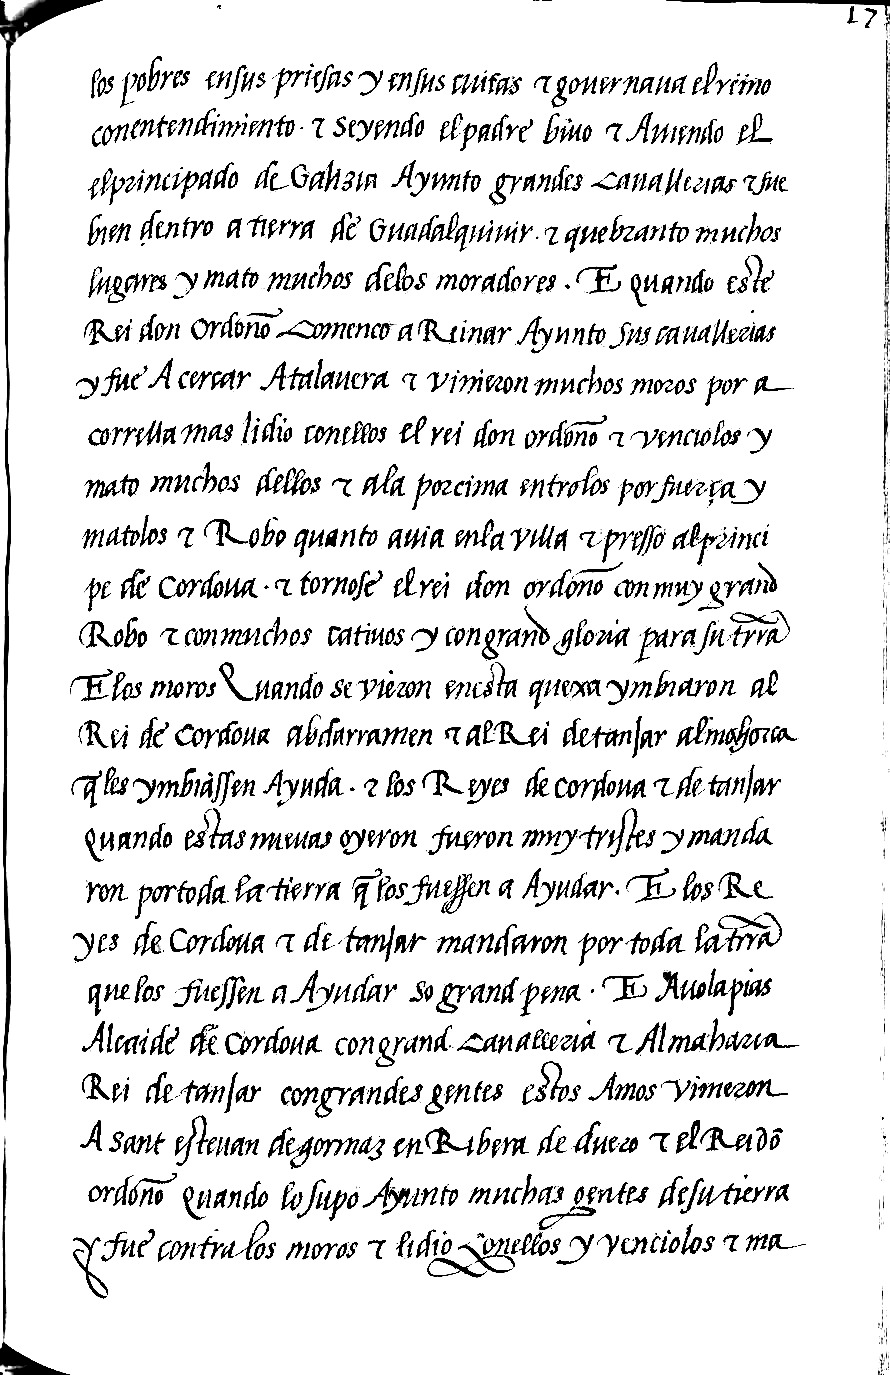 17
los pobres ensus priesas y ensus cuitas ⁊ governaua el reino
conentendimiento · ⁊ seyendo el padre biuo ⁊ Auiendo el
el principado de Galizia Ayunto grandes Cauallerias ⁊ fue
bien dentro a tierra de Guadalquiuir · ⁊ quebranto muchos
lugares y mato muchos delos moradores . E quando este
Rei don Ordoño Comenco a Reinar Ayunto sus cauallerias
y fue A cercar Atalauera ⁊ vinieron muchos moros por a
corrella mas lidio conellos el rei don ordoño ⁊ venciolos y
mato muchos dellos ⁊ ala porcima entrolos por fuerça y
matolos ⁊ Robo quanto auia enla villa ⁊ presso al princi
pe de Cordoua · ⁊ tornose el rei don ordoño con muy grand
Robo ⁊ con muchos catiuos y con grand gloria para su trr̃a
E los moros Quando se vieron enesta quexa ymbiaron al
Rei de Cordoua abdarramen ⁊ al Rei de tanjar almohorca
q̃ les ymbiassen Ayuda . ⁊ los Reyes de cordoua ⁊ de tanjar
quando estas nueuas oyeron fueron muy tristes y manda
ron por toda la tierra q̃ los fuessen a Ayudar . E los Re
yes de Cordoua ⁊ de tanjar mandaron por toda la trr̃a
que los fuessen a Ayudar so grand pena · E Auolapias
Alcaide de Cordoua con grand Caualleria ⁊ Almaharia
Rei de tanjar con grandes gentes estos Amos vinieron
A sant esteuan de gormaz en Ribera de duero ⁊ el Rei dõ
ordoño Quando lo supo Ayunto muchas gentes de su tierra
y fue contra los moros ⁊ lidio Conellos y venciolos ⁊ ma